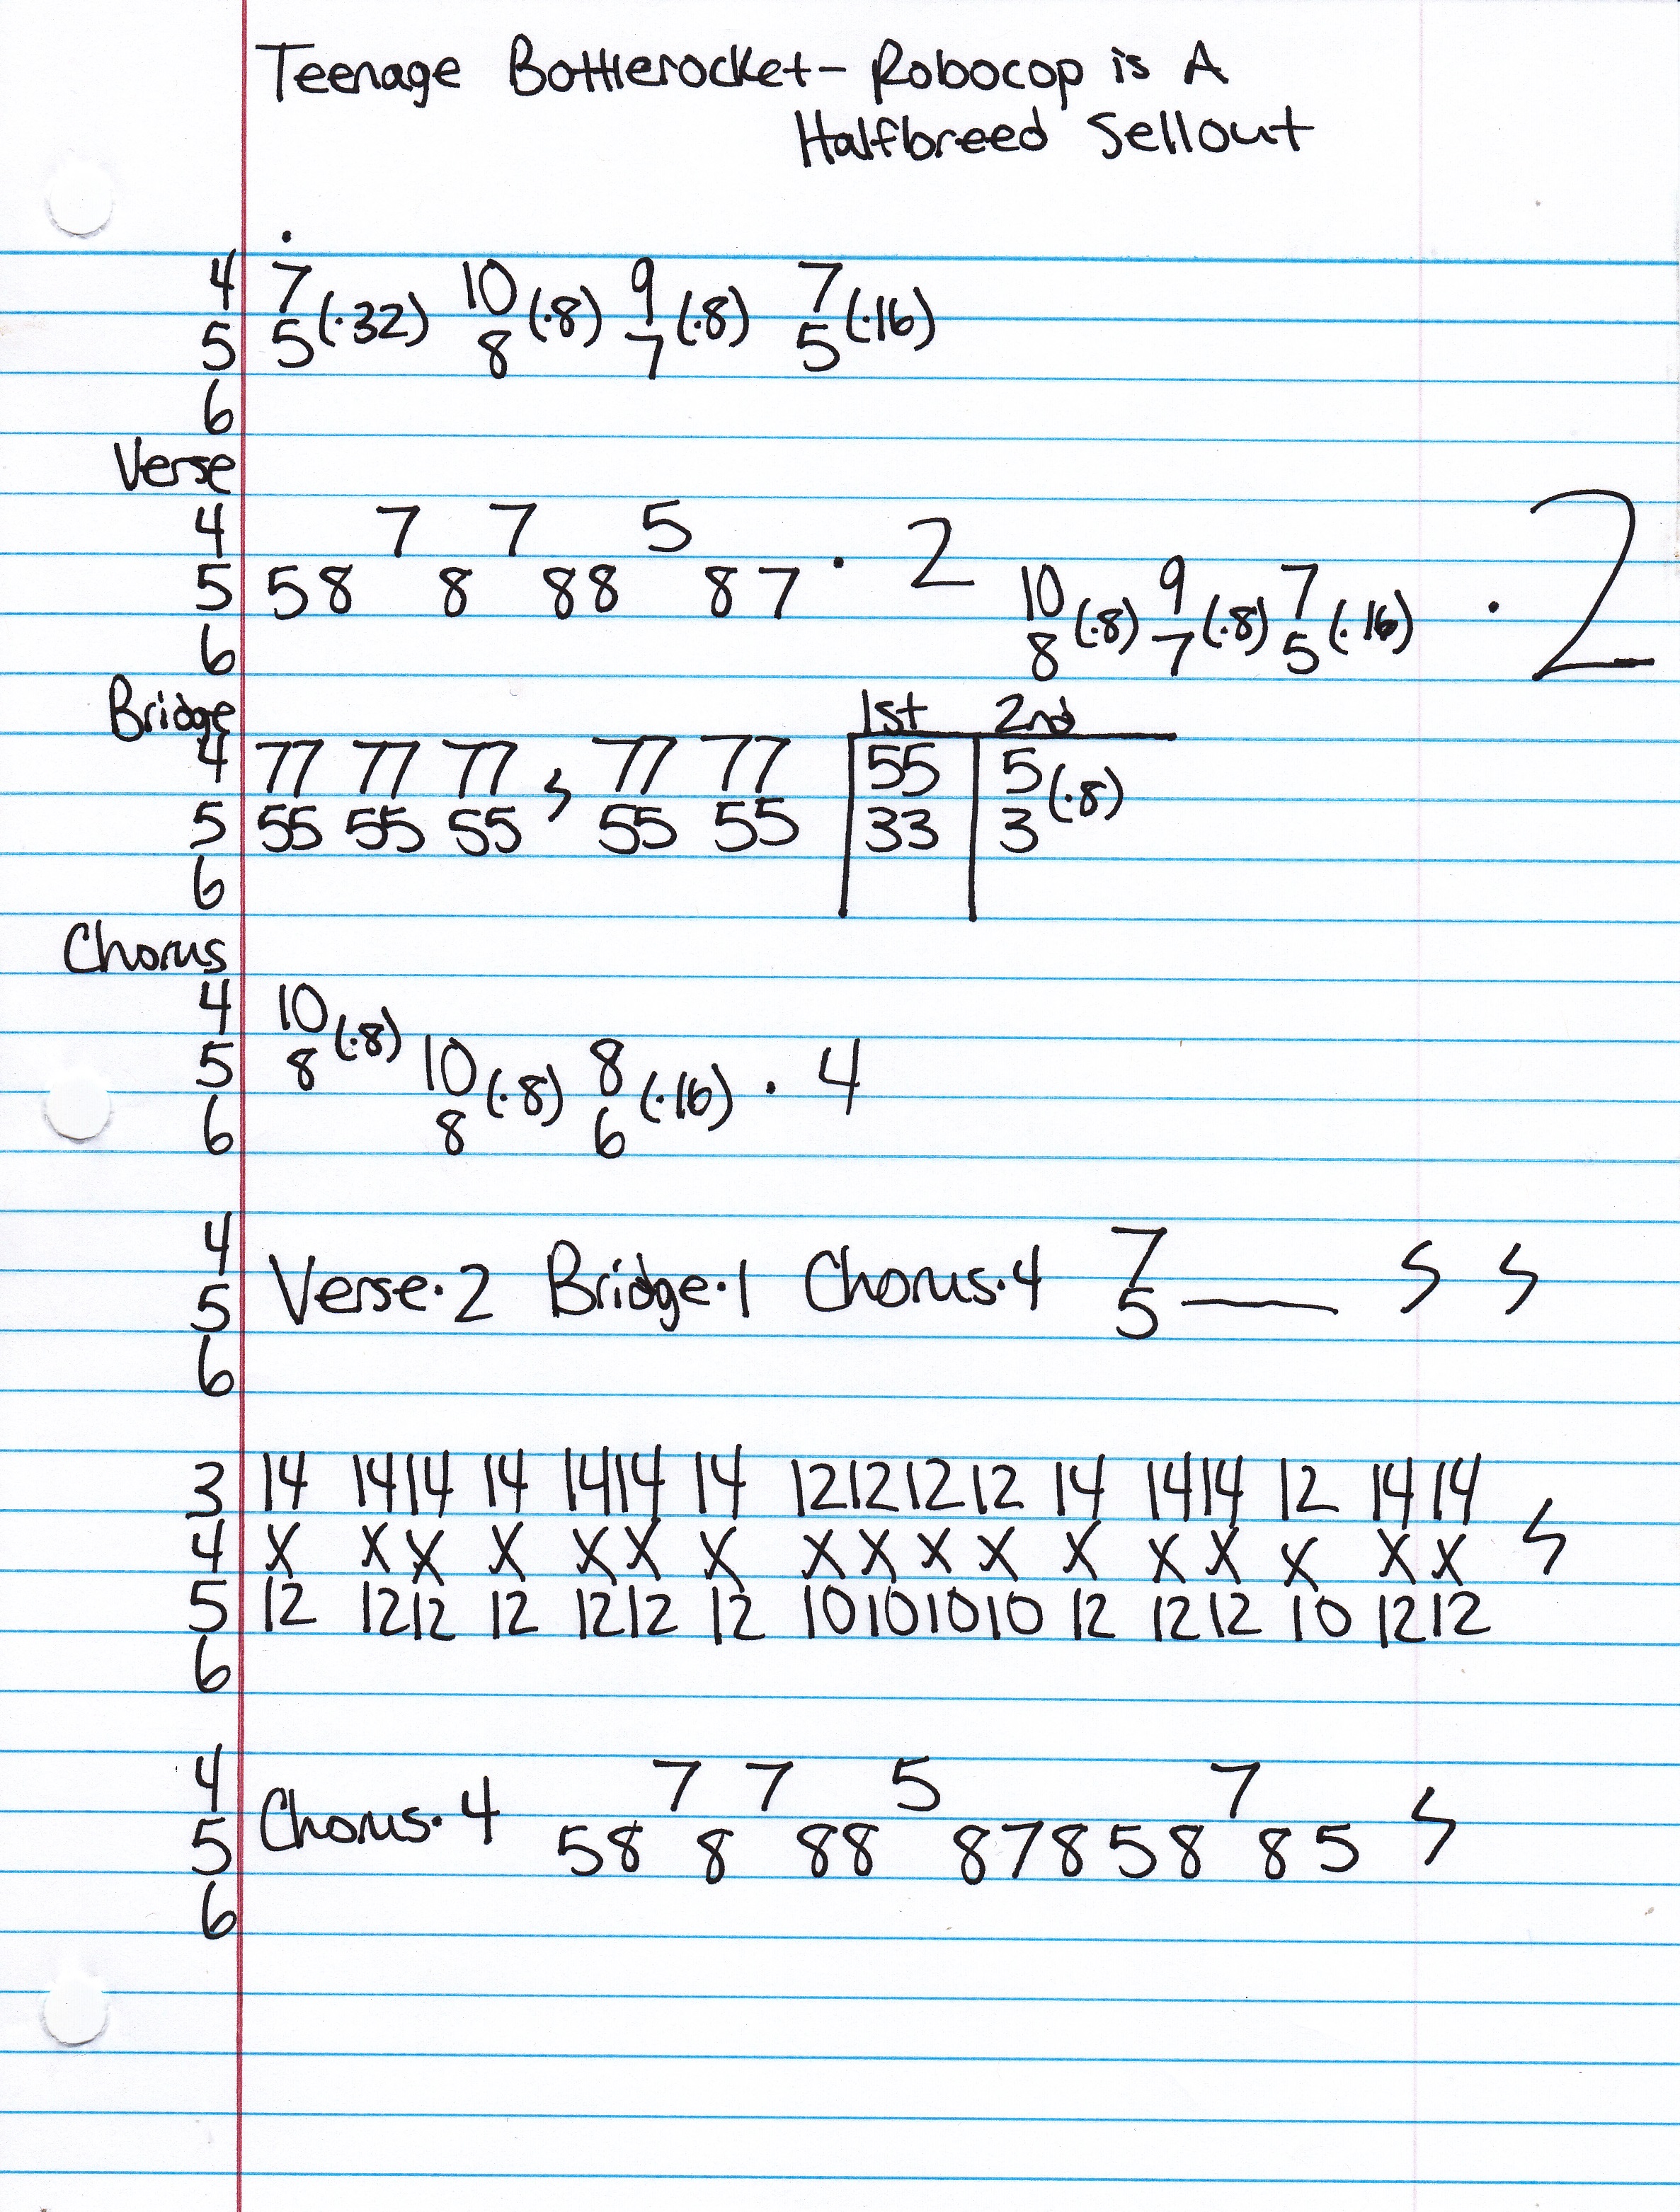 Teenage Bottlerocket - Robocop is A
Halfbreed Sellout
4 7 10 9 7
(·32) (·8) (·8) (·16)
5 5 8 7 5
6
Verse
4 7 7 5
5 58 8 88 87 · 2
10 9 7
(·8) (·8) (·16) · 2
6 8 7 5
Bridge 1st 2nd
4 77 77 77 77 77 55 5
(·8)
5 55 55 55 55 55 33 3
6
Chorus
4 10
(·8)
5 8 10 8
(·8) (·16) · 4
6 8 6
4 7
Verse·2 Bridge·1 Chorus·4
5 5
6
3 14 14 14 14 14 14 14 12 12 12 12 14 14 14 12 14 14
4 x x x x x x x x x x x x x x x x x
5 12 12 12 12 12 12 12 10 10 10 10 12 12 12 10 12 12
6
4 7 7 5 7
Chorus·4
5 58 8 88 87858 85
6